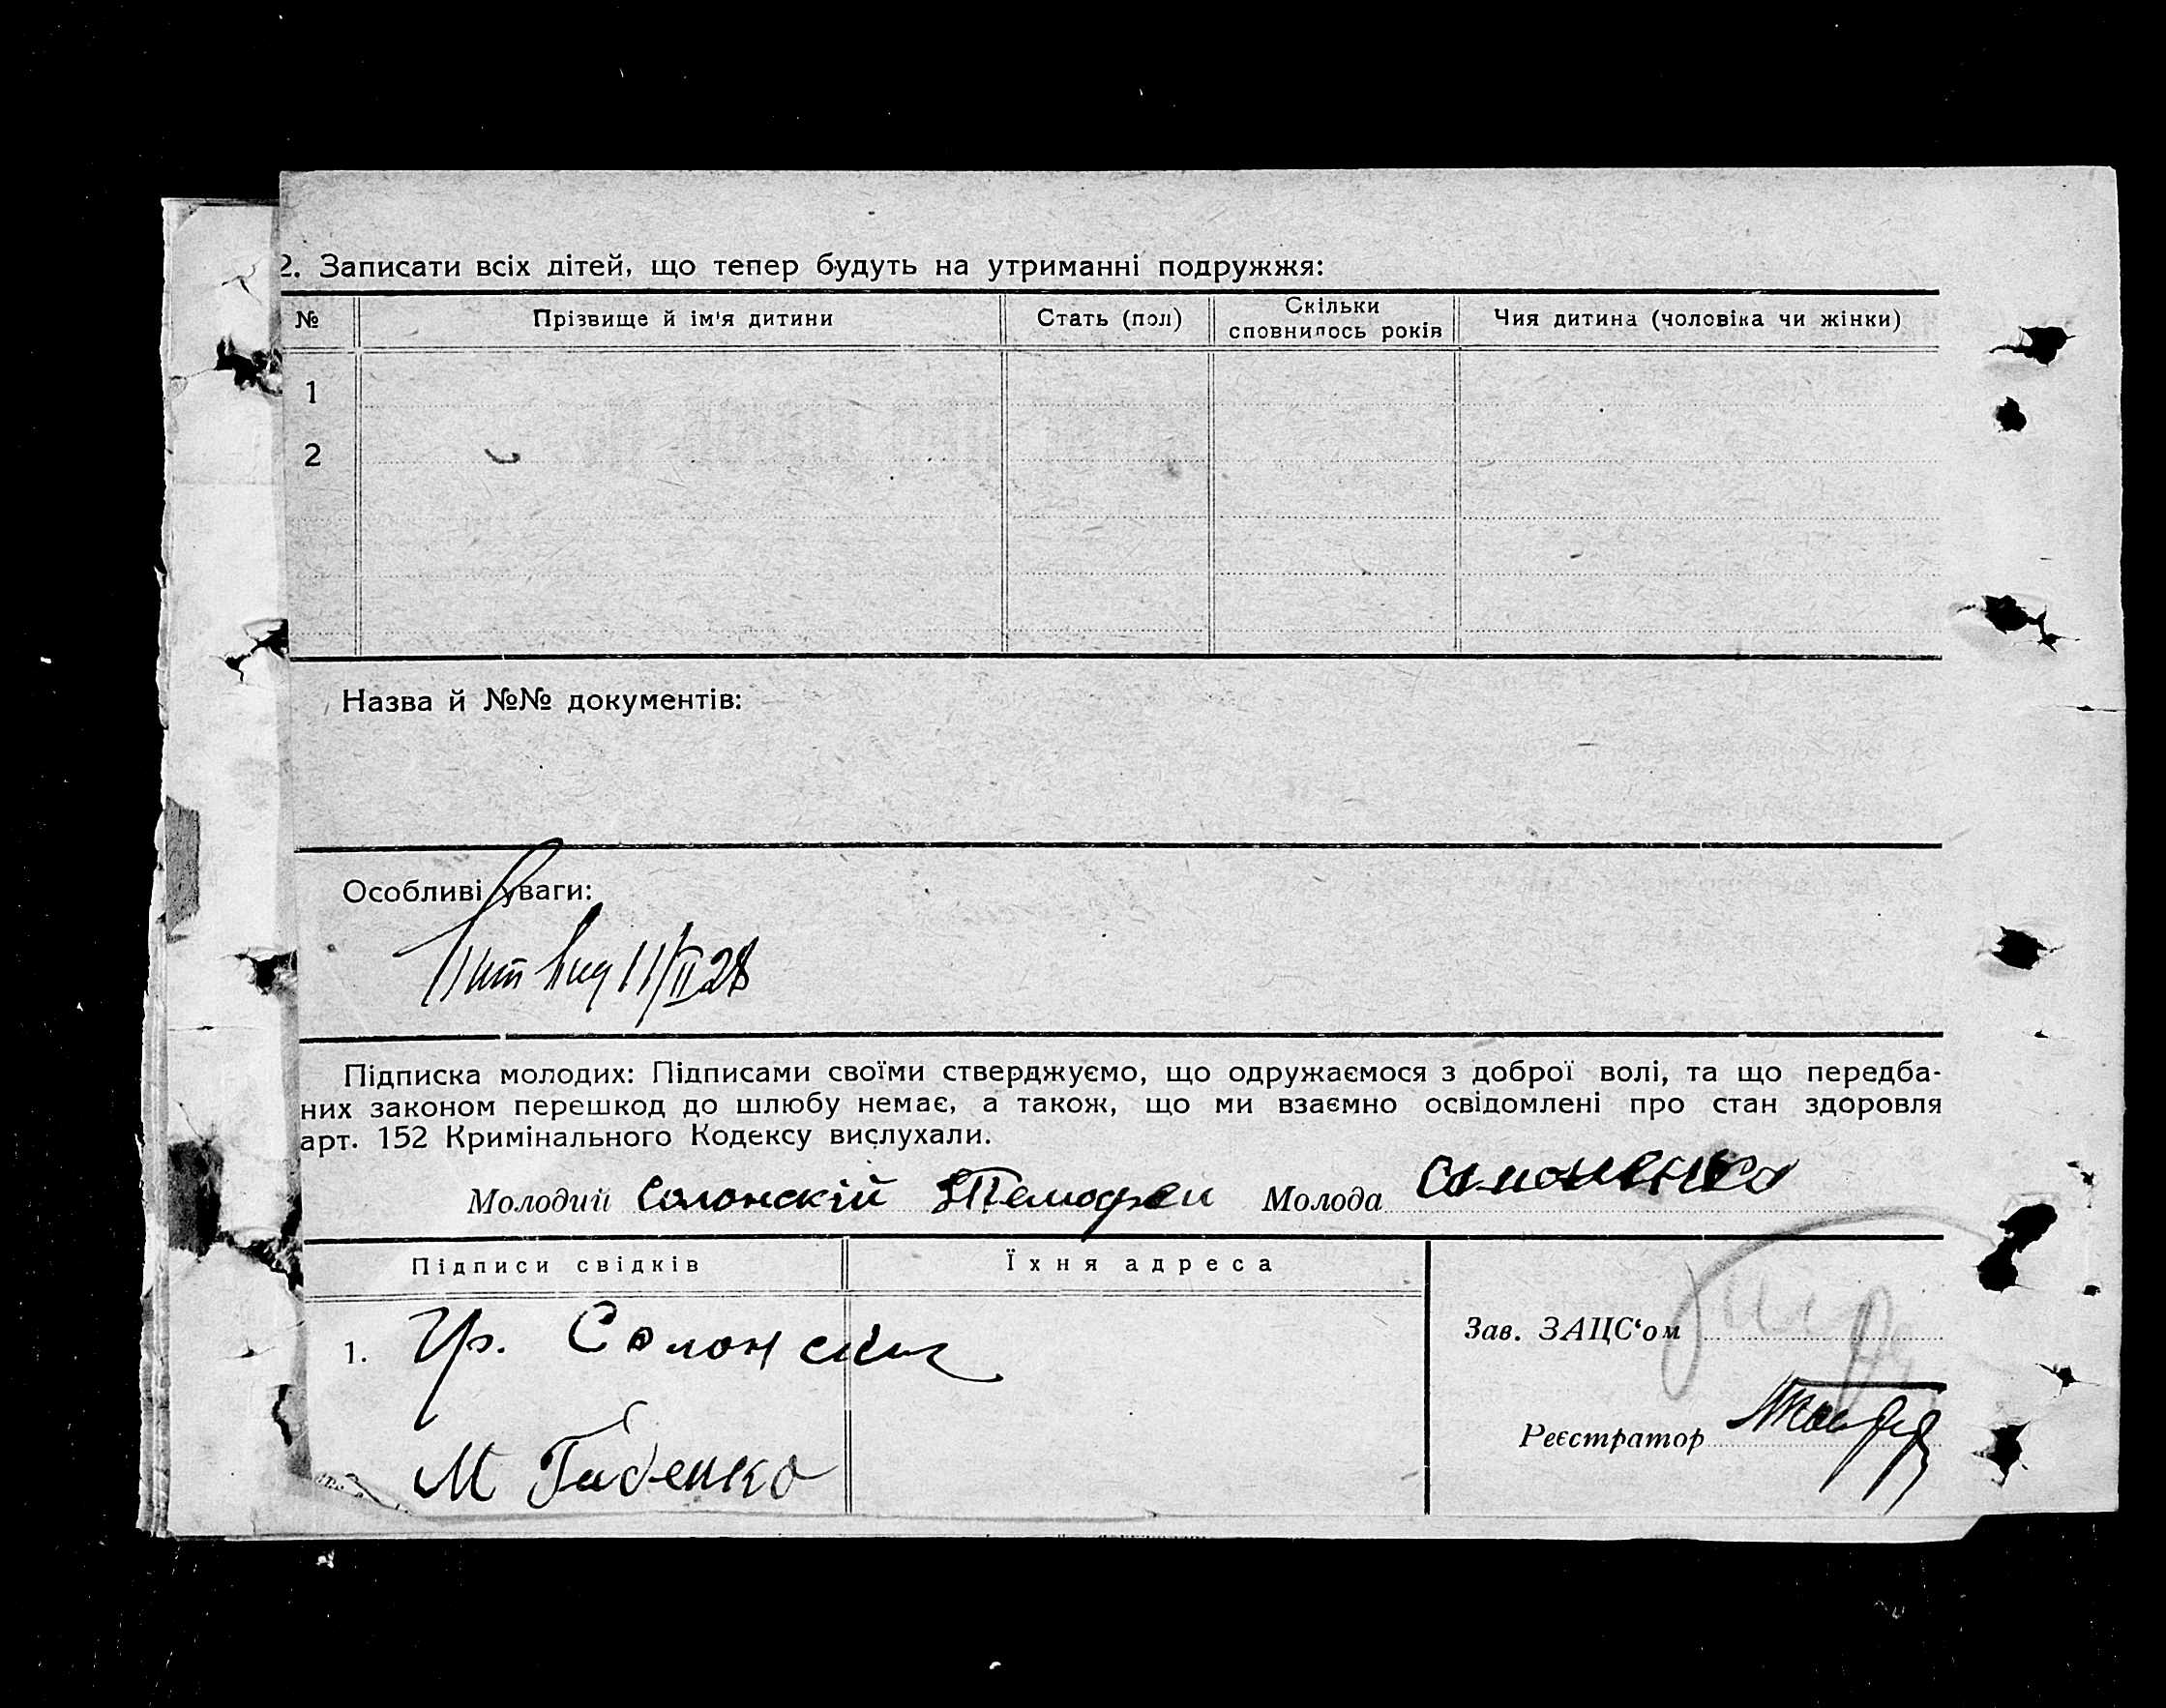 2. Записати всіх дітей, що тепер будуть на утриманні подружжя:
№ Прізвище й ім'я дитини Стать (пол) Скільки сповнилось років Чия дитина (чоловіка чи жінки)
1
2
Назва й №№ документів:
Особливі уваги:
11/II 28
Підписка молодих: Підписами своїми стверджуємо, що одружаємося з доброї волі, та що передба-
них законом перешкод до шлюбу немає, а також, що ми взаємно освідомлені про стан здоровля
арт. 152 Кримінального Кодексу вислухали.
Молодий Солонскій Молода
Підписи свідків Їхня адреса
1. Гр. Солонски
М
Зав. ЗАЦС'ом
Реєстратор